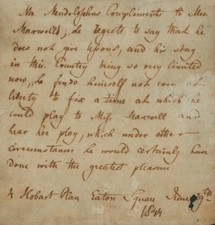 Mr Mendelssohns Compliments to Mrs
Maxwell, he regrets to say that he
does not give lessons, and his stay
in this Country being so very limited
now, he finds himself not very at
liberty to fix a time at which he
could play to Miss Maxwell and
hear her play, which under other
circumstances he would certainly have
done with the greatest pleasure
4 Hobart Place Eaton Square June
1844